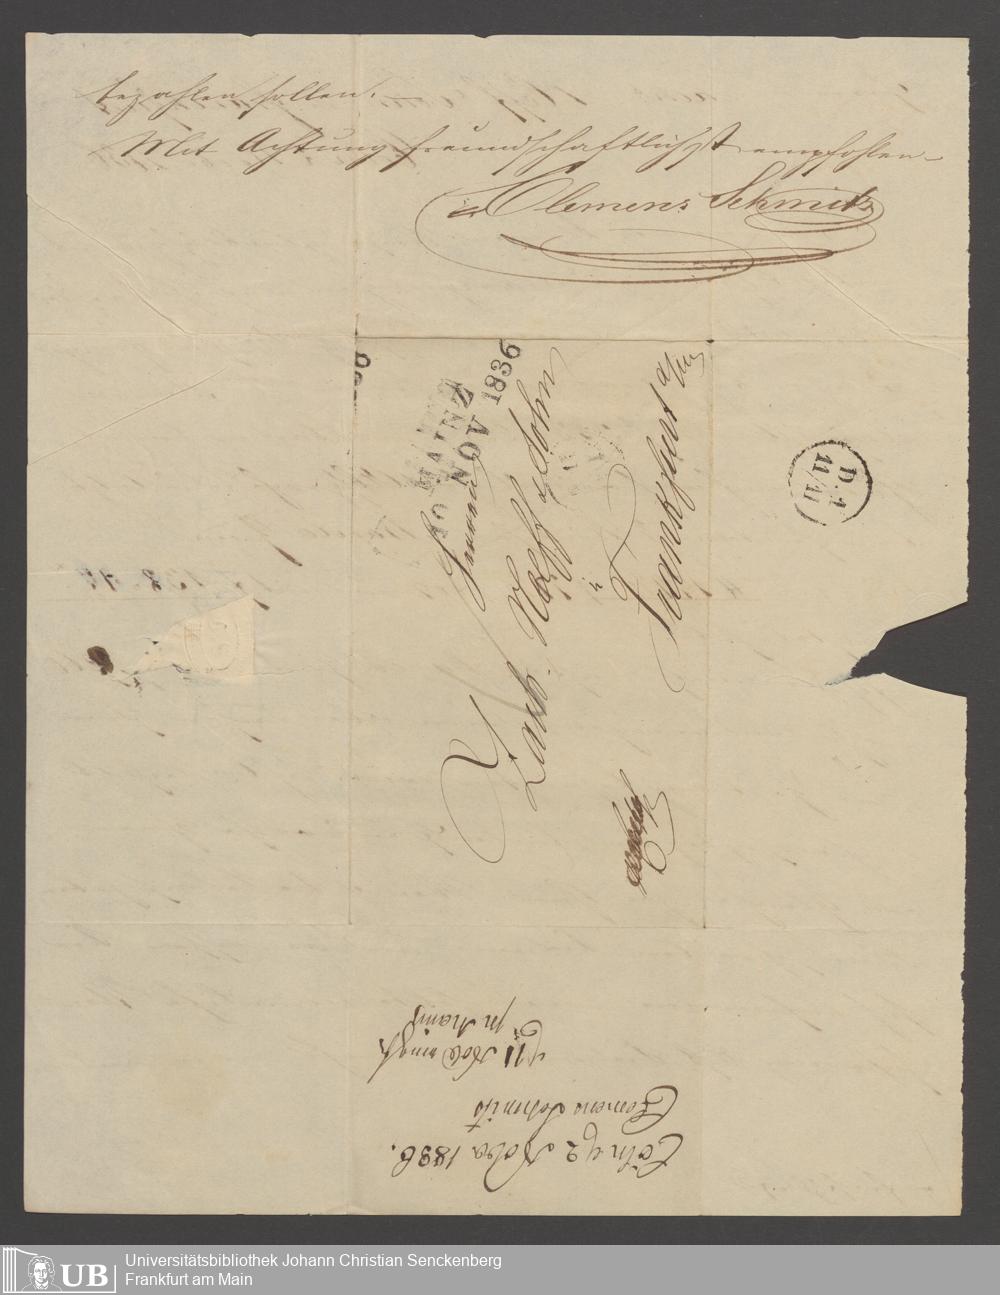 bezahlen sollen. —
Mit Achtung freundschaftlichst empfohlen —
Clemens Schmitz
MAINZ
10 NOV 1836
Herren
Zach. Wolff & Sohn
in
Frankfurt a/m
D. 1
11/11
Cöln 2 Nov 1836.
Clemens Schmitz
11 Nov
Universitätsbibliothek Johann Christian Senckenberg
Frankfurt am Main
UB